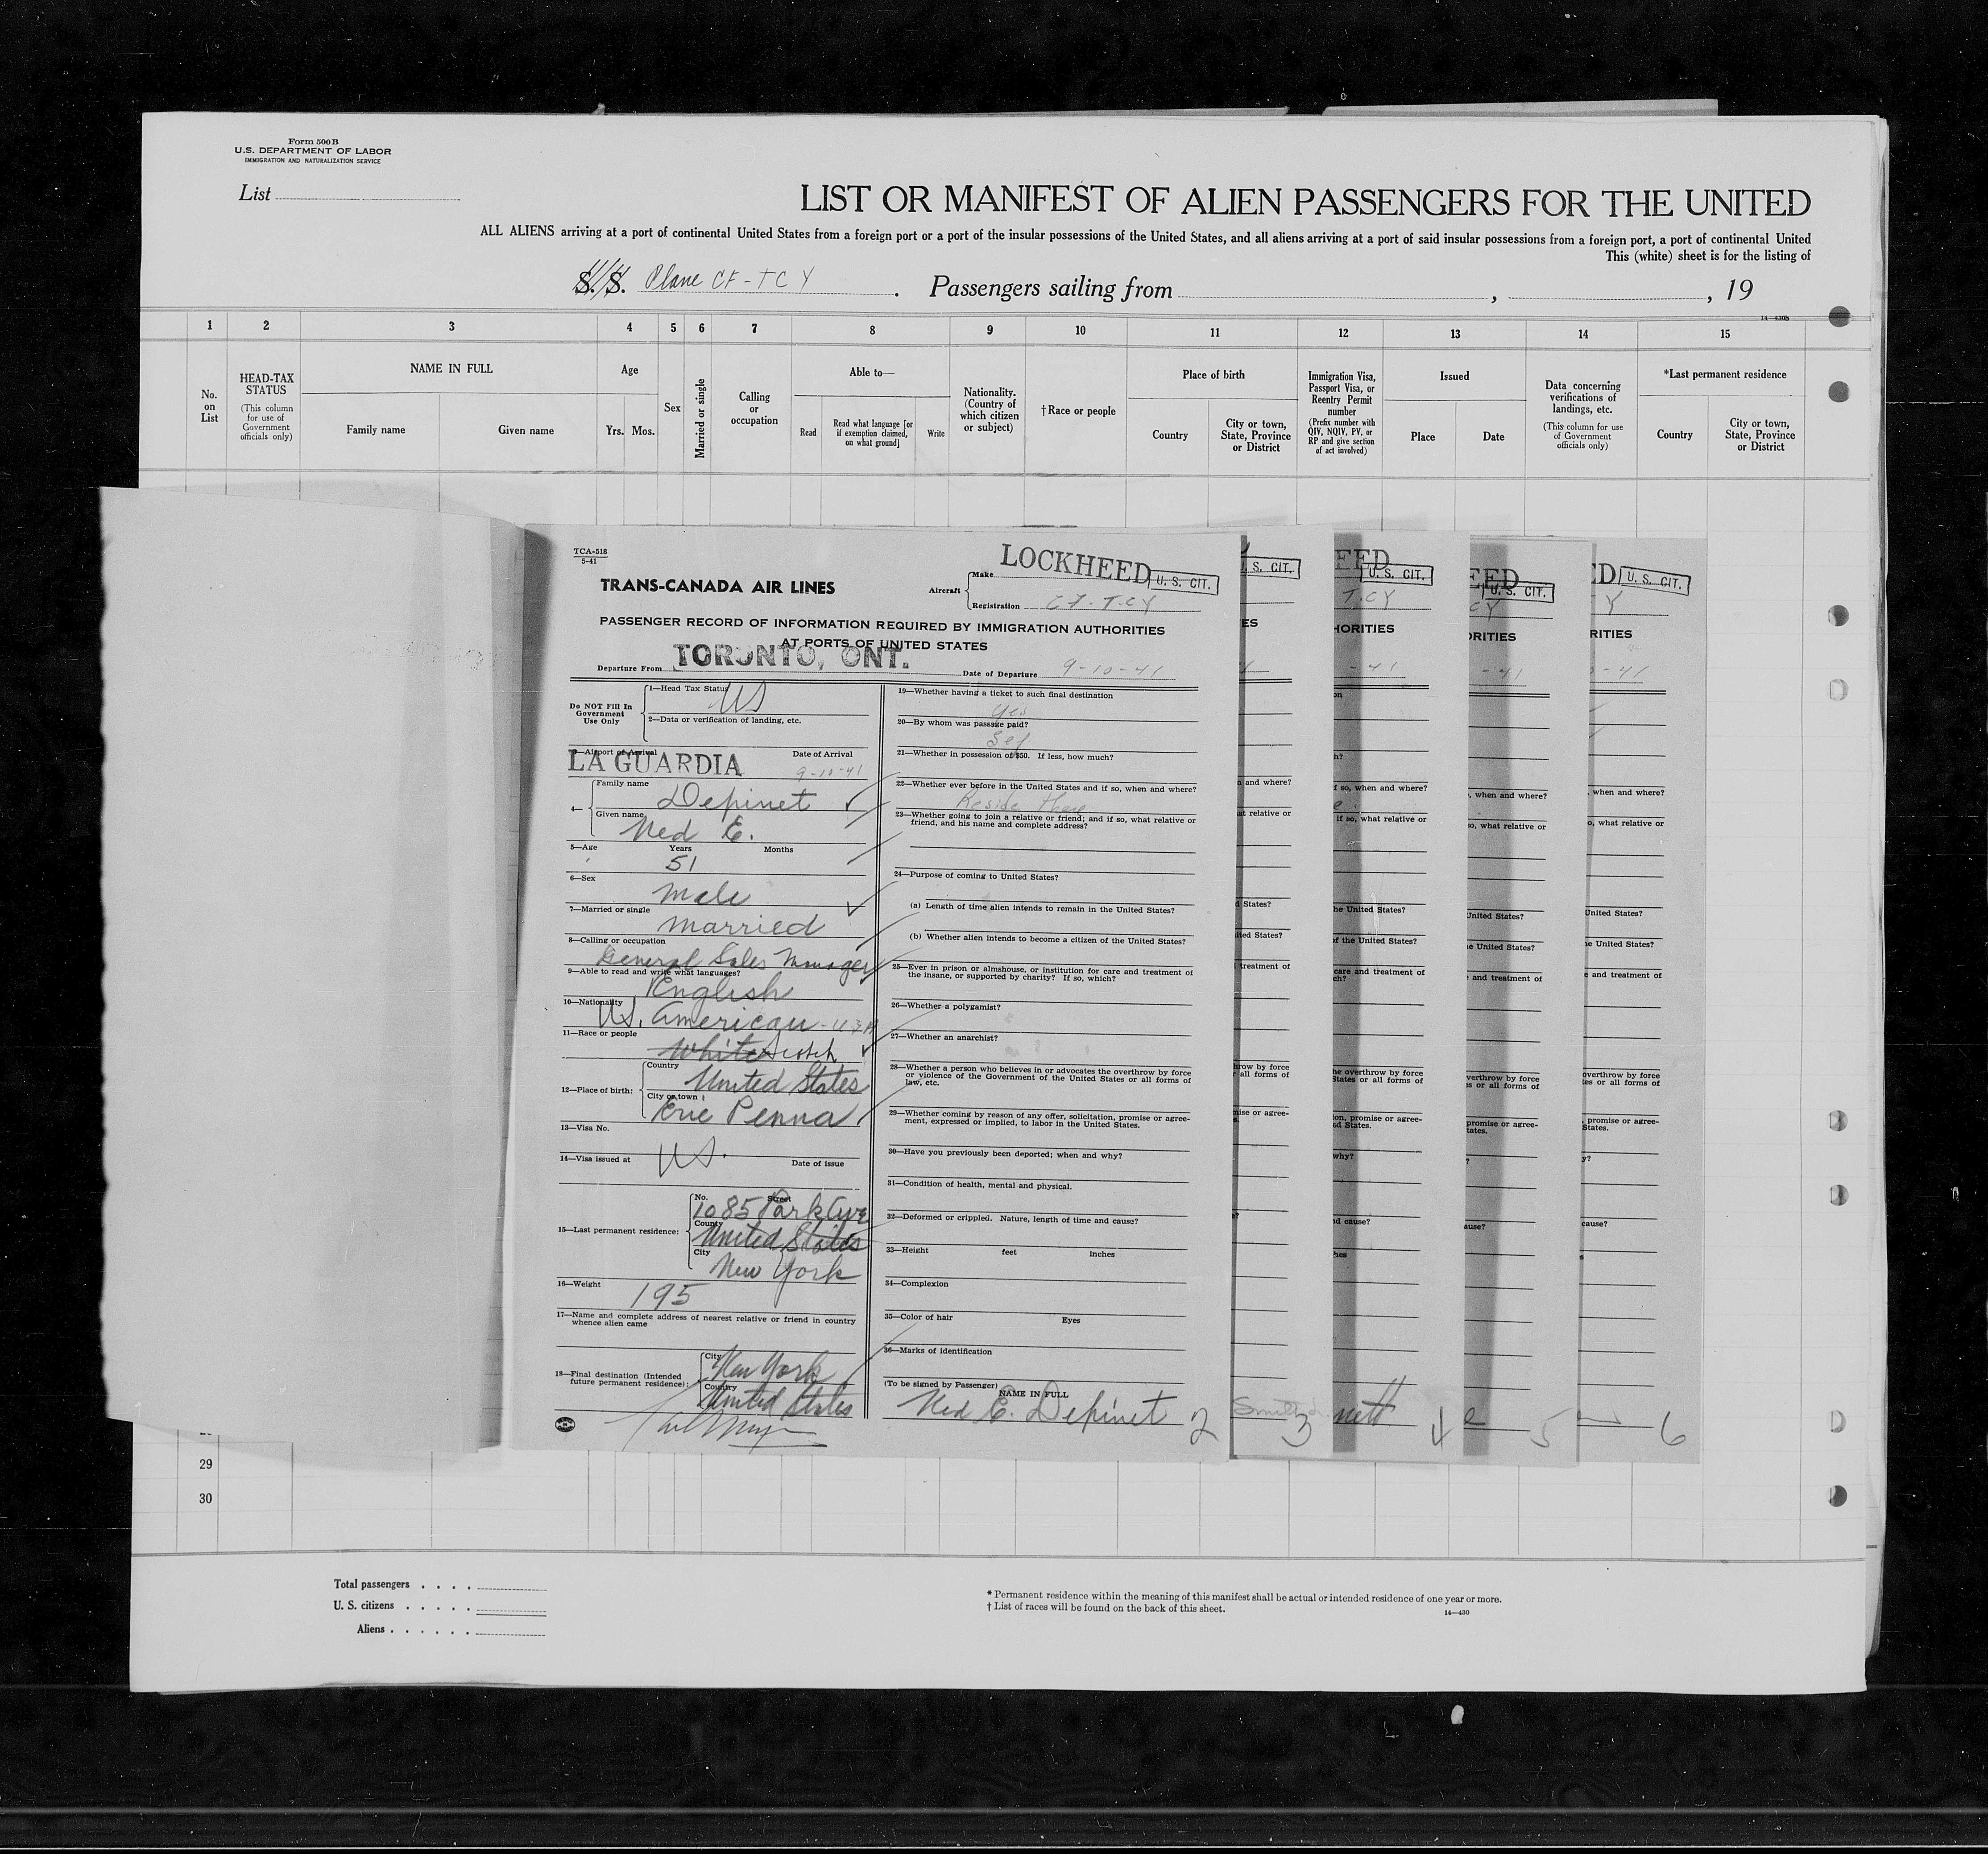 Form 500 B
U.S. DEPARTMENT OF LABOR
IMMIGRATION AND NATURALIZATION SERVICE
List
LIST OR MANIFEST OF ALIEN PASSENGERS FOR THE UNITED
ALL ALIENS arriving at a port of continental United States from a foreign port or a port of the insular possessions of the United States, and all aliens arriving at a port of said insular possessions from a foreign port, a port of continental United
This (white) sheet is for the listing of
S. S. Plane CF-TCY. Passengers sailing from , , 19
14—430B
1 2 3 4 5 6 7 8 9 10 11 12 13 14 15
No. on List
HEAD-TAX STATUS
(This column for use of Government officials only)
NAME IN FULL
Family name Given name
Age
Yrs. Mos.
Sex
Married or single
Calling or occupation
Able to—
Read
Read what language [or if exemption claimed, on what ground]
Write
Nationality. (Country of which citizen or subject)
†Race or people
Place of birth
Country
City or town, State, Province or District
Immigration Visa, Passport Visa, or Reentry Permit number
(Prefix number with QIV, NQIV, PV, or RP and give section of act involved)
Issued
Place Date
Data concerning verifications of landings, etc.
(This column for use of Government officials only)
*Last permanent residence
Country
City or town, State, Province or District
TCA-518
5-41
TRANS-CANADA AIR LINES
Aircraft
Make LOCKHEED
U. S. CIT.
Registration CF-TCY
PASSENGER RECORD OF INFORMATION REQUIRED BY IMMIGRATION AUTHORITIES
AT PORTS OF UNITED STATES
Departure From TORONTO, ONT. Date of Departure 9-10-41
Do NOT Fill In Government Use Only
1—Head Tax Status US
2—Data or verification of landing, etc.
3—Airport of Arrival Date of Arrival
LA GUARDIA 9-10-41
4— Family name
Depinet
Given name
Ned E.
5—Age Years Months
51
6—Sex
Male
7—Married or single
Married
8—Calling or occupation
General Sales Manager
9—Able to read and write what languages?
English
10—Nationality
US. American - USA
11—Race or people
White Scotch
12—Place of birth:
Country
United States
City or town
Erie Penna
13—Visa No.
14—Visa issued at US. Date of issue
15—Last permanent residence:
No. Street
1085 Park Ave
County
United States
City
New York
16—Weight
195
17—Name and complete address of nearest relative or friend in country
whence alien came
18—Final destination (Intended
future permanent residence):
City
New York
Country
United States
19—Whether having a ticket to such final destination
Yes
20—By whom was passage paid?
Self
21—Whether in possession of $50. If less, how much?
22—Whether ever before in the United States and if so, when and where?
Reside there
23—Whether going to join a relative or friend; and if so, what relative or
friend, and his name and complete address?
24—Purpose of coming to United States?
(a) Length of time alien intends to remain in the United States?
(b) Whether alien intends to become a citizen of the United States?
25—Ever in prison or almshouse, or institution for care and treatment of
the insane, or supported by charity? If so, which?
26—Whether a polygamist?
27—Whether an anarchist?
28—Whether a person who believes in or advocates the overthrow by force
or violence of the Government of the United States or all forms of
law, etc.
29—Whether coming by reason of any offer, solicitation, promise or agree-
ment, expressed or implied, to labor in the United States.
30—Have you previously been deported; when and why?
31—Condition of health, mental and physical.
32—Deformed or crippled. Nature, length of time and cause?
33—Height feet inches
34—Complexion
35—Color of hair Eyes
36—Marks of identification
(To be signed by Passenger)
NAME IN FULL
Ned E. Depinet 2
3
nett 4
e 5
6
29
30
Total passengers
U. S. citizens
Aliens
* Permanent residence within the meaning of this manifest shall be actual or intended residence of one year or more.
† List of races will be found on the back of this sheet.
14—430